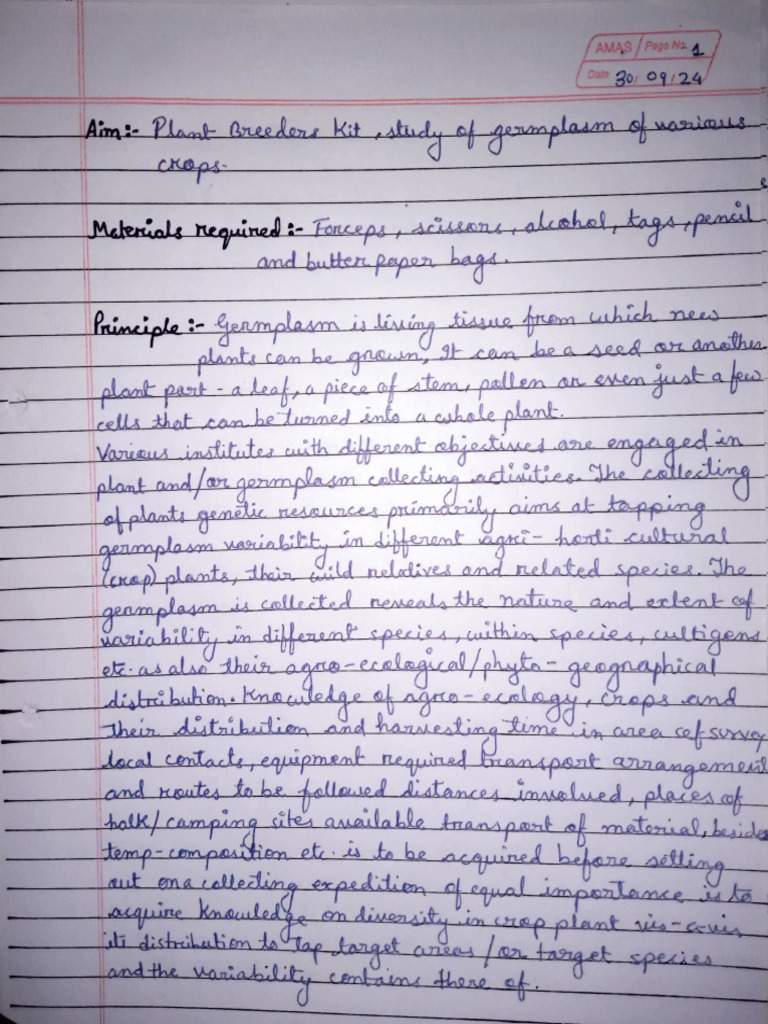 AMAS Page No. 1
Date 30/09/24
Aim:- Plant Breeders Kit, study of germplasm of various
crops.
Materials required:- Forceps, scissors, alcohol, tags, pencil
and butter paper bags.
Principle:- Germplasm is living tissue from which new
plants can be grown, It can be a seed or another
plant part - a leaf, a piece of stem, pollen or even just a few
cells that can be turned into a whole plant.
Various institutes with different objectives are engaged in
plant and/or germplasm collecting activities. The collecting
of plants genetic resources primarily aims at tapping
germplasm variability in different agri- horti cultural
(crop) plants, their wild relatives and related species. The
germplasm is collected reveals the nature and extent of
variability in different species, within species, cultigens
etc. as also their agro-ecological/phyto- geographical
distribution. Knowledge of agro-ecology, crops and
their distribution and harvesting time in area of survey
local contacts, equipment required transport arrangement
and routes to be followed distances involved, places of
halk/camping sites available transport of material, besides
temp-composition etc. is to be acquired before selling
out on a collecting expedition of equal importance is to
acquire knowledge on diversity in crop plant vis-a-vis
its distribution to tap target areas /or target species
and the variability contains there of.